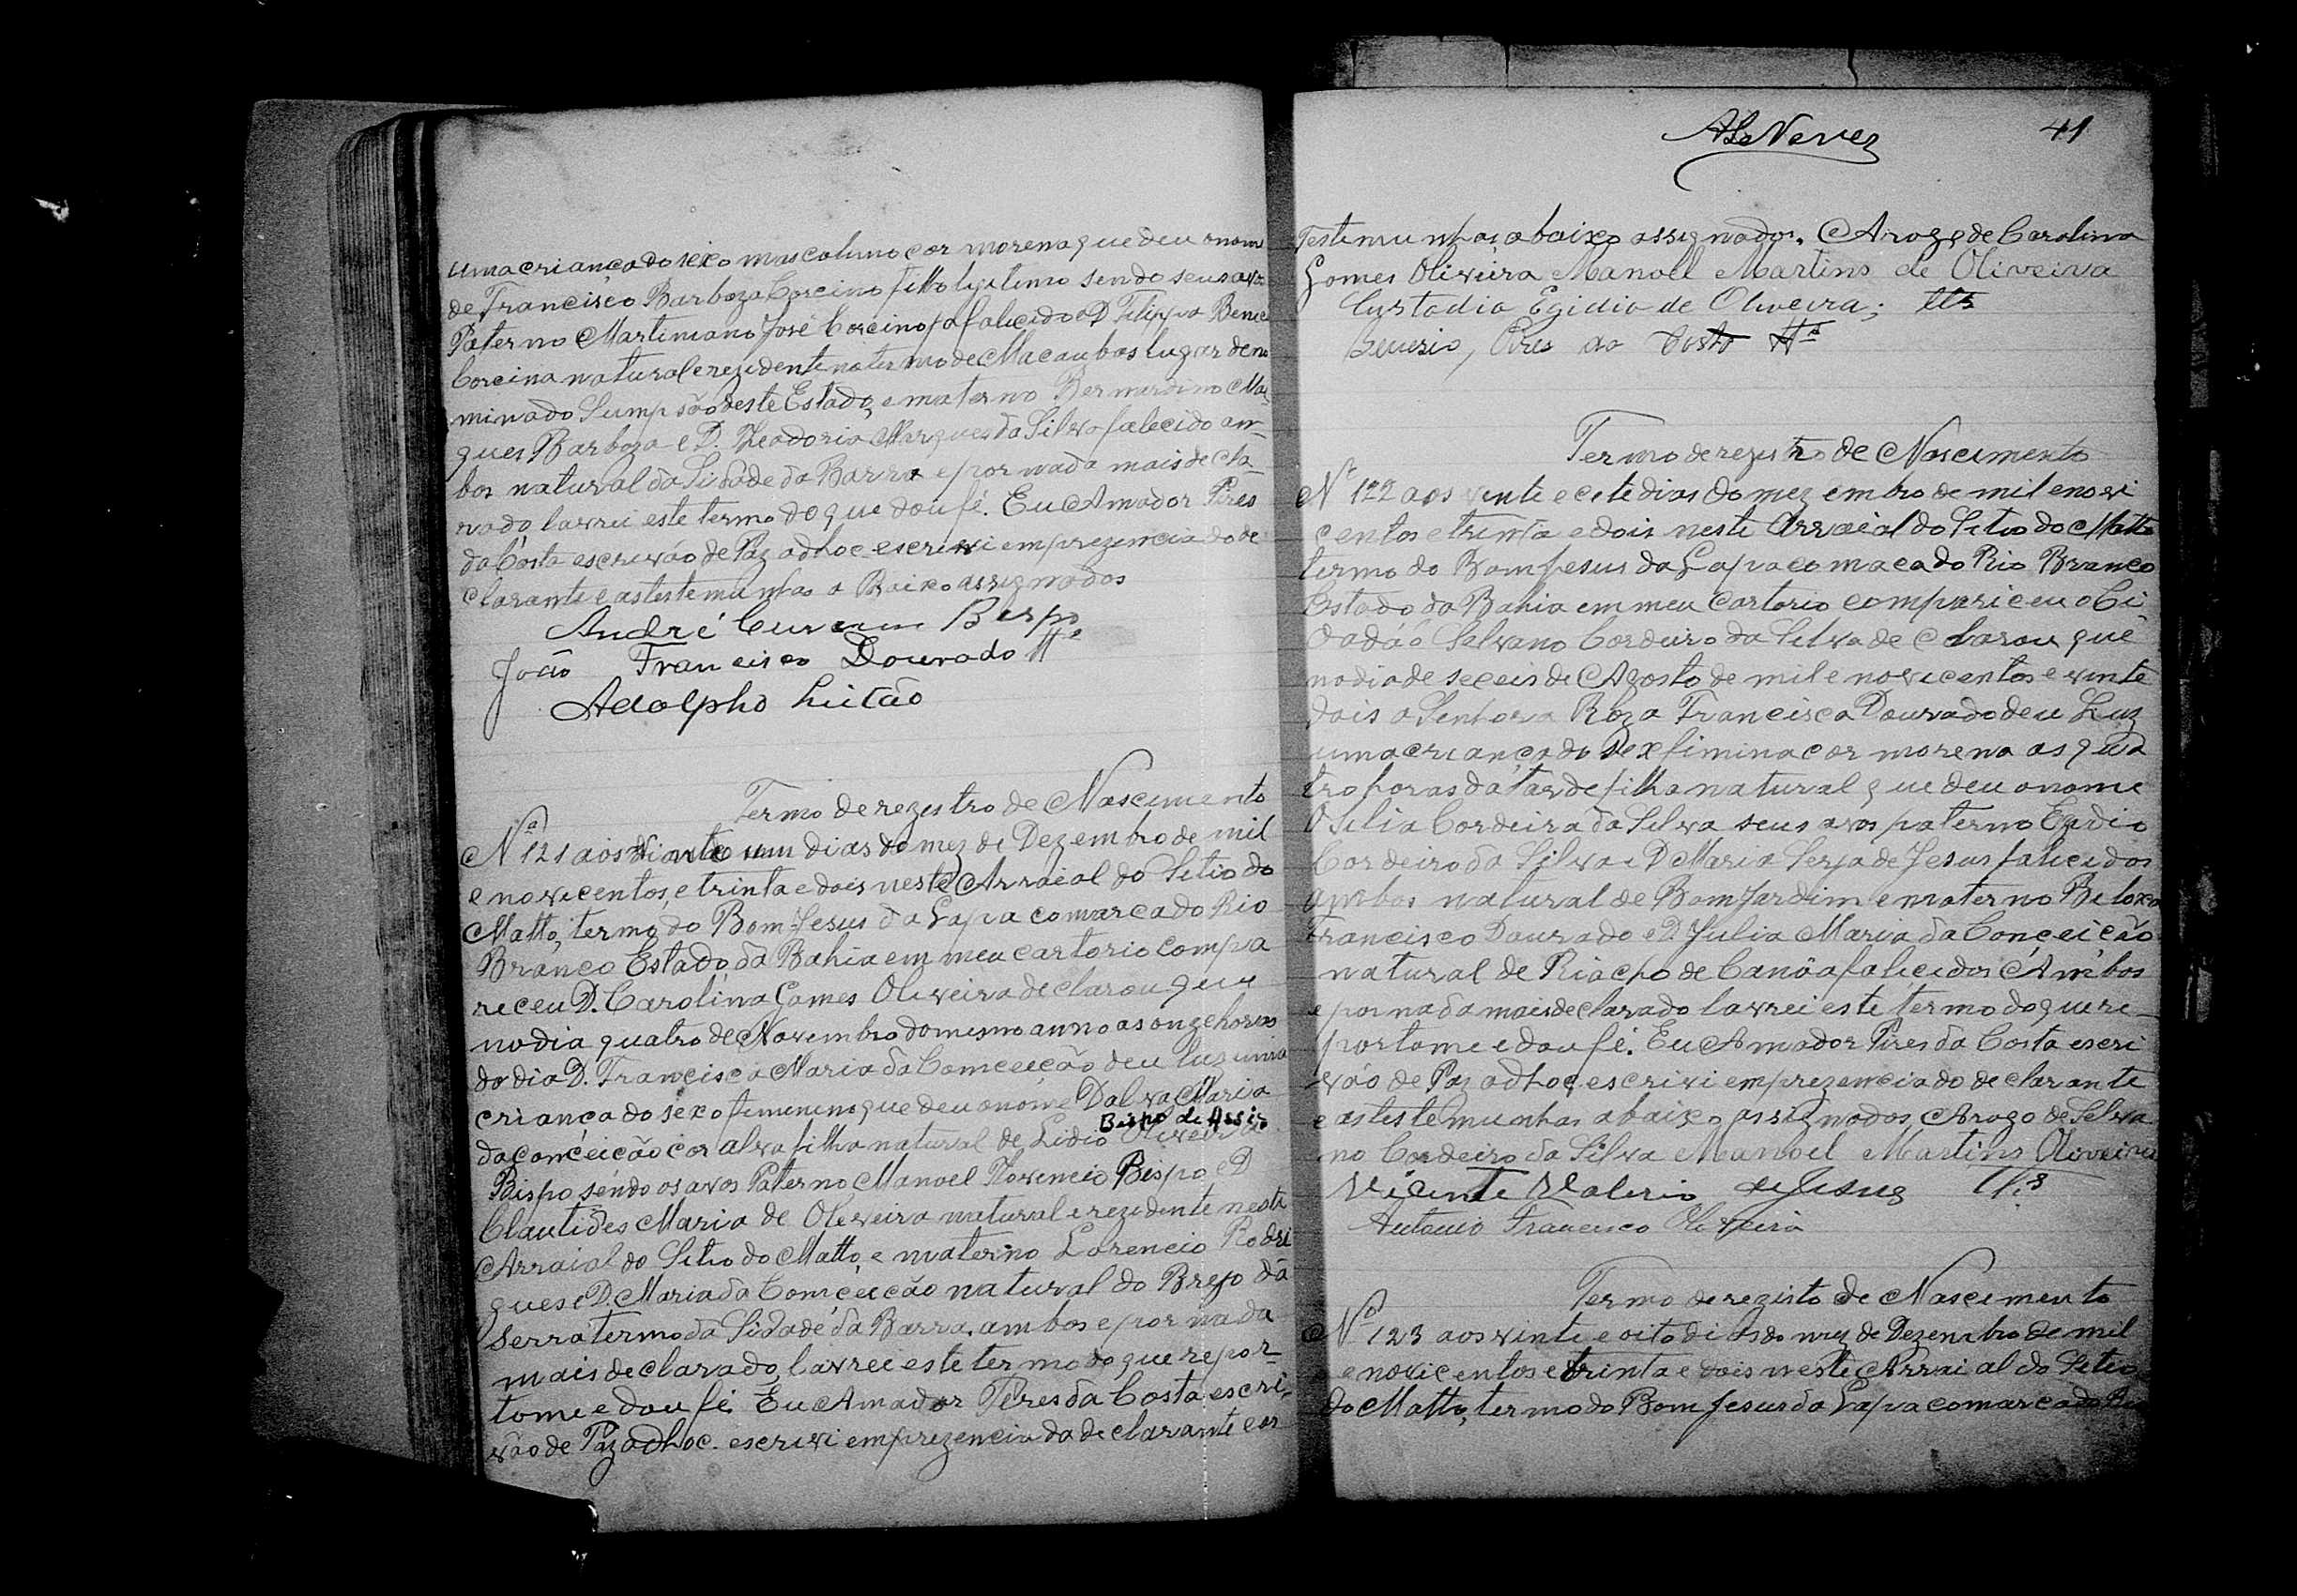 uma criança do sexo mascoluno cor morena que deu o nom
de Francisco Barboza Corcino filho ligitimo sendo seus avos
Paterno Martiniano José Corcino ja falicido e D. Filippa Bene
Corcina natural e rezidente no termo de Macaubas lugar deno
minado Sumpsão deste Estado, e materno Bernardino Mar
ques Barboza e D. Theodoria Marques da Silva falecido am-
bos natural da Sidade da Barra e por nada mais decla-
rado lavrei este termo do que dou fé. Eu Amador Pires
da Costa escrivão de Paz adhoc escrevi em prezencia do de
clarante e as testemunhas a Baixo assignados
André Bispo
João Francisco Dourado
Adolpho Leitão
Termo de rezestro de Nascimento
Nº 121 aos vinte um dias do mez de Dezembro de mil
e novecentos, e trinta e dois neste Arraial do Sitio do
Matto, termo do Bom Jesus da Lapa comarca do Rio
Branco Estado da Bahia em meu cartorio compa
receu D. Carolina Gomes Oliveira declarou que
no dia quatro de Novembro do mesmo anno as onze horas
do dia D. Francisca Maria da Conceicão deu luz uma
criança do sexo femenino que deu o nome Dalva Maria
Bispo de Assis
da Conceicão cor alva filha natural de Lidio Oliveira
Bispo sendo os avos Paterno Manoel Florencio Bispo e D
Clautides Maria de Oliveira natural e rezidente neste
Arraial do Sitio do Matto, e materno Lorencio Rodri
gues e D. Maria da Conceicão natural do Brejo da
Serra termo da Sidade da Barra. ambos e por nada
mais declarado, lavrei este termo do que repor-
tome e dou fé. Eu Amador Peres da Costa escri-
vão de Paz adhoc. escrevi em prezencia da declarante e as
ALeNeves 41
Testemunhas abaixo assignados. A rogo de Carolina
Gomes Oliveira Manoel Martins de Oliveira
Custodio Egidio de Oliveira;
Pires da Costa
Termo de rezestro de Nascimento
Nº 122 aos vinte e cete dias do mez embro de mil enovi
centos e trinta e dois neste Arraial do Sitio do Matto
termo do Bom Jesus da Lapa comaca do Rio Branco
Estado da Bahia em meu Cartorio compariceu o Ci
dadão Selvano Cordeiro da Silva declarou que
no dia deseceis de Agosto de mil e novecentos e vinte
dois a Senhora Roza Francisca Dourado deu Luz
uma criança do sex fimina cor morena as qua
tro horas da tarde filha natural que deu o nome
Osilia Cordeira da Silva seus avos paterno Egidio
Cordeiro da Silva e D Maria Serja de Jesus falicidos
ambos natural de Bom Jardim e materno
Francisco Dourado e D. Julia Maria da Conceicão
natural de Riacho de Canôa falicidos Ambos
e por nada mais declarado lavrei este termo do que re-
portome e dou fé. Eu Amador Pires da Costa escri
vão de Paz adhoc escrivi em prezencia do declarante
e as testemunhas abaixo assignados, A rogo de Selva
no Cordeiro da Silva Manoel Martins Oliveira
Vicente Valerio de Jesus
Antonio Francisco Oliveira
Termo de registo de Nascimento
Nº 123 aos vinte e oito dias do mez de Dezembro de mil
e novicentos e trinta e dois neste Arraial do Sitio
do Matto, termo do Bom Jesus da Lapa comarca do Rio